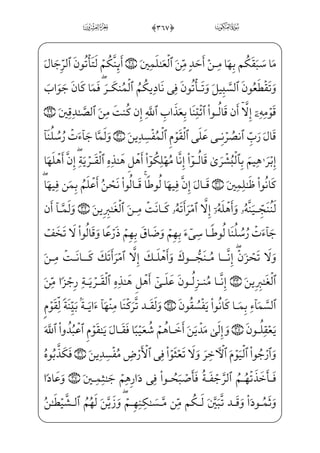 سُورَةُ الْعَنكَبُوتِ ﴿٣٦٧﴾ الجُزْءُ العِشْرُونَ
مَا سَبَقَكُم بِهَا مِنْ أَحَدٍ مِّنَ ٱلْعَٰلَمِينَ ٢٨ أَئِنَّكُمْ لَتَأْتُونَ ٱلرِّجَالَ
وَتَقْطَعُونَ ٱلسَّبِيلَ وَتَأْتُونَ فِى نَادِيكُمُ ٱلْمُنكَرَ ۖ فَمَا كَانَ جَوَابَ
قَوْمِهِۦٓ إِلَّآ أَن قَالُوا۟ ٱئْتِنَا بِعَذَابِ ٱللَّهِ إِن كُنتَ مِنَ ٱلصَّٰدِقِينَ ٢٩
قَالَ رَبِّ ٱنصُرْنِى عَلَى ٱلْقَوْمِ ٱلْمُفْسِدِينَ ٣٠ وَلَمَّا جَآءَتْ رُسُلُنَآ
إِبْرَٰهِيمَ بِٱلْبُشْرَىٰ قَالُوٓا۟ إِنَّا مُهْلِكُوٓا۟ أَهْلِ هَٰذِهِ ٱلْقَرْيَةِ ۖ إِنَّ أَهْلَهَا
كَانُوا۟ ظَٰلِمِينَ ٣١ قَالَ إِنَّ فِيهَا لُوطًا ۚ قَالُوا۟ نَحْنُ أَعْلَمُ بِمَن فِيهَا ۖ
لَنُنَجِّيَنَّهُۥ وَأَهْلَهُۥٓ إِلَّا ٱمْرَأَتَهُۥ كَانَتْ مِنَ ٱلْغَٰبِرِينَ ٣٢ وَلَمَّآ أَن
جَآءَتْ رُسُلُنَا لُوطًا سِىٓءَ بِهِمْ وَضَاقَ بِهِمْ ذَرْعًا وَقَالُوا۟ لَا تَخَفْ
وَلَا تَحْزَنْ ۖ إِنَّا مُنَجُّوكَ وَأَهْلَكَ إِلَّا ٱمْرَأَتَكَ كَانَتْ مِنَ
ٱلْغَٰبِرِينَ ٣٣ إِنَّا مُنزِلُونَ عَلَىٰٓ أَهْلِ هَٰذِهِ ٱلْقَرْيَةِ رِجْزًا مِّنَ
ٱلسَّمَآءِ بِمَا كَانُوا۟ يَفْسُقُونَ ٣٤ وَلَقَد تَّرَكْنَا مِنْهَآ ءَايَةًۢ بَيِّنَةً لِّقَوْمٍ
يَعْقِلُونَ ٣٥ وَإِلَىٰ مَدْيَنَ أَخَاهُمْ شُعَيْبًا فَقَالَ يَٰقَوْمِ ٱعْبُدُوا۟ ٱللَّهَ
وَٱرْجُوا۟ ٱلْيَوْمَ ٱلْءَاخِرَ وَلَا تَعْثَوْا۟ فِى ٱلْأَرْضِ مُفْسِدِينَ ٣٦ فَكَذَّبُوهُ
فَأَخَذَتْهُمُ ٱلرَّجْفَةُ فَأَصْبَحُوا۟ فِى دَارِهِمْ جَٰثِمِينَ ٣٧ وَعَادًا
وَثَمُودَا۟ وَقَد تَّبَيَّنَ لَكُم مِّن مَّسَٰكِنِهِمْ ۖ وَزَيَّنَ لَهُمُ ٱلشَّيْطَٰنُ